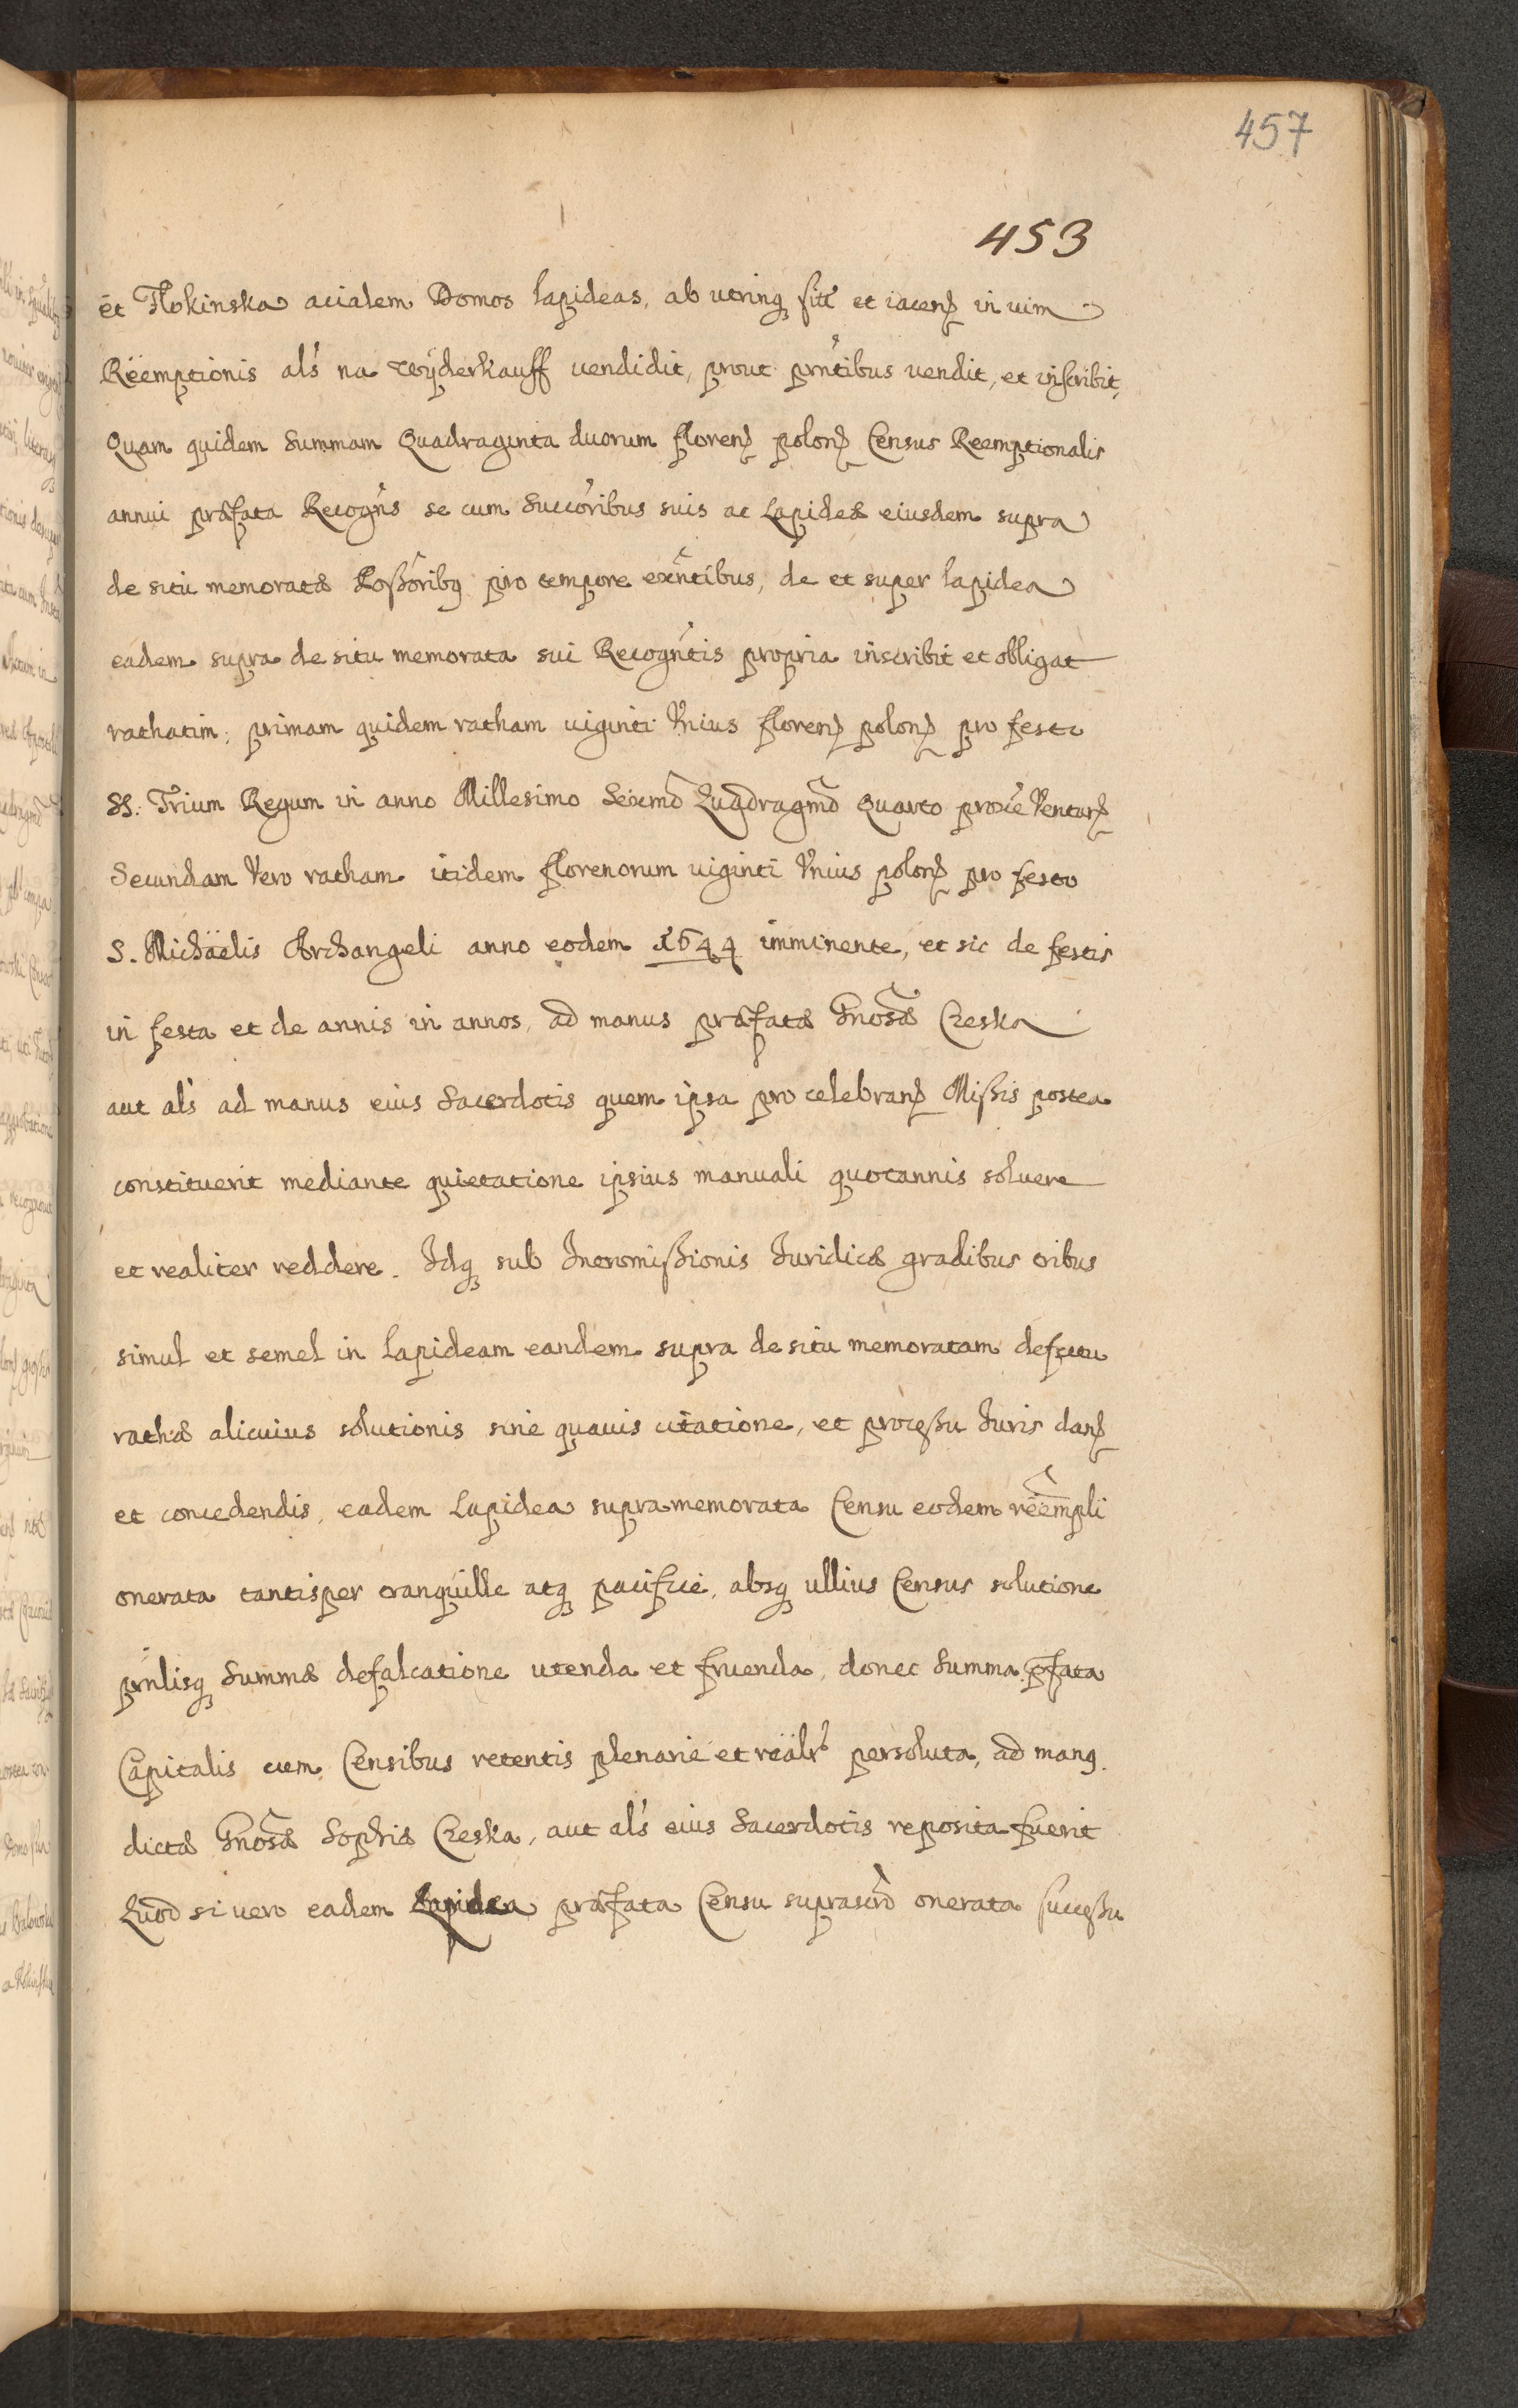 457
453
et Tlokinska acialem Domos lapideas, ab utrinq sitt et iacen in vim
Reemptionis als na Wyderkauff vendidit, prout prntibus vendit, et inscribit,
Quam quidem Summam Quadraginta duorum floren polon Census Reemptionalis
annui præfata Recogns se cum Succoribus suis ac Lapideæ eiusdem supra
de situ memoratæ Possoribq pro tempore exntibus, de et super lapidea
eadem supra de situ memorata sui Recogntis propria inscribit et obligat
rathatim; primam quidem ratham viginti Vnius floren polon pro festo
SS. Trium Regum in anno Millesimo Sexcmo Quadragmo Quarto proxie Ventur
Secundam Vero ratham itidem florenorum viginti Vnius polon pro festo
S. Michaëlis Archangeli anno eodem 1644 imminente, et sic de festis
in festa et de annis in annos, ad manus præfatæ Gnosæ Czeska
aut als ad manus eius Sacerdotis quem ipsa pro celebran Missis postea
constituerit mediante quietatione ipsius manuali quotannis soluere
et realiter reddere. Idq sub Intromissionis Iuridicæ gradibus oibus
simul et semel in Lapideam eandem supra de situ memoratam defectu
rathæ alicuius solutionis sine quavis citatione, et processu Iuris dan
et concedendis, eadem Lapidea supramemorata Censu eodem reempli
onerata tantisper tranquille atq pacifice, absq ullius Census solutione
prnlisq Summæ defalcatione utenda et fruenda, donec Summa pfata
Capitalis cum Censibus retentis plenarie et realr persoluta, ad manq
dictæ Gnosæ Sophiæ Czeska, aut als eius Sacerdotis reposita fuerit
Quod si vero eadem Lapidea præfata Censu suprascro onerata successu